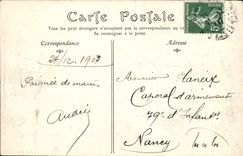 Carte Postale
Tous les pays étrangers n'acceptent pas la correspondance au recto
Se renseigner à la poste.
Correspondance
Adresse
24/12 1907
Poignée de main
André
Monsieur Haneix
Caporal d'armement
79e d'Infant
Nancy